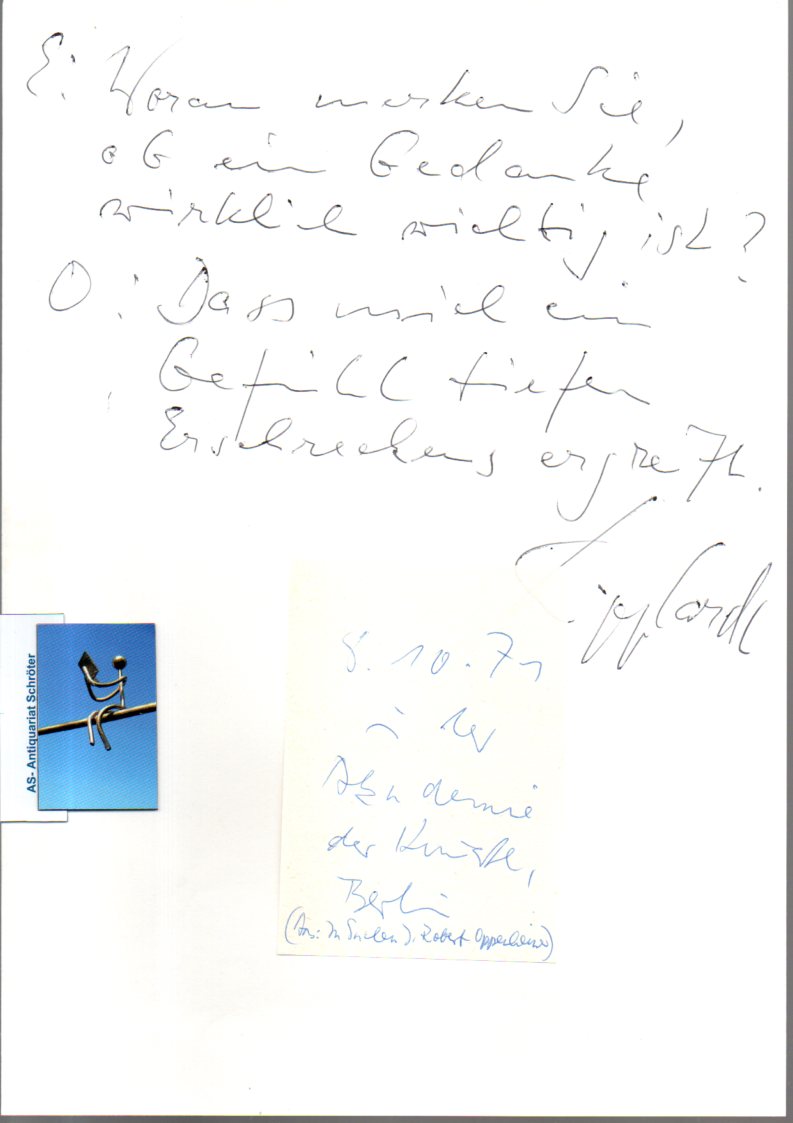 E: Woran merken Sie,
ob ein Gedanke
wirklich wichtig ist?
O: Dass mich ein
Gefühl tiefen
Erschreckens ergreift.
Kipphardt
8.10.71
in der
Akademie
der Künste,
Berlin
(Aus: In Sachen J. Robert Oppenheimer)
AS- Antiquariat Schröter